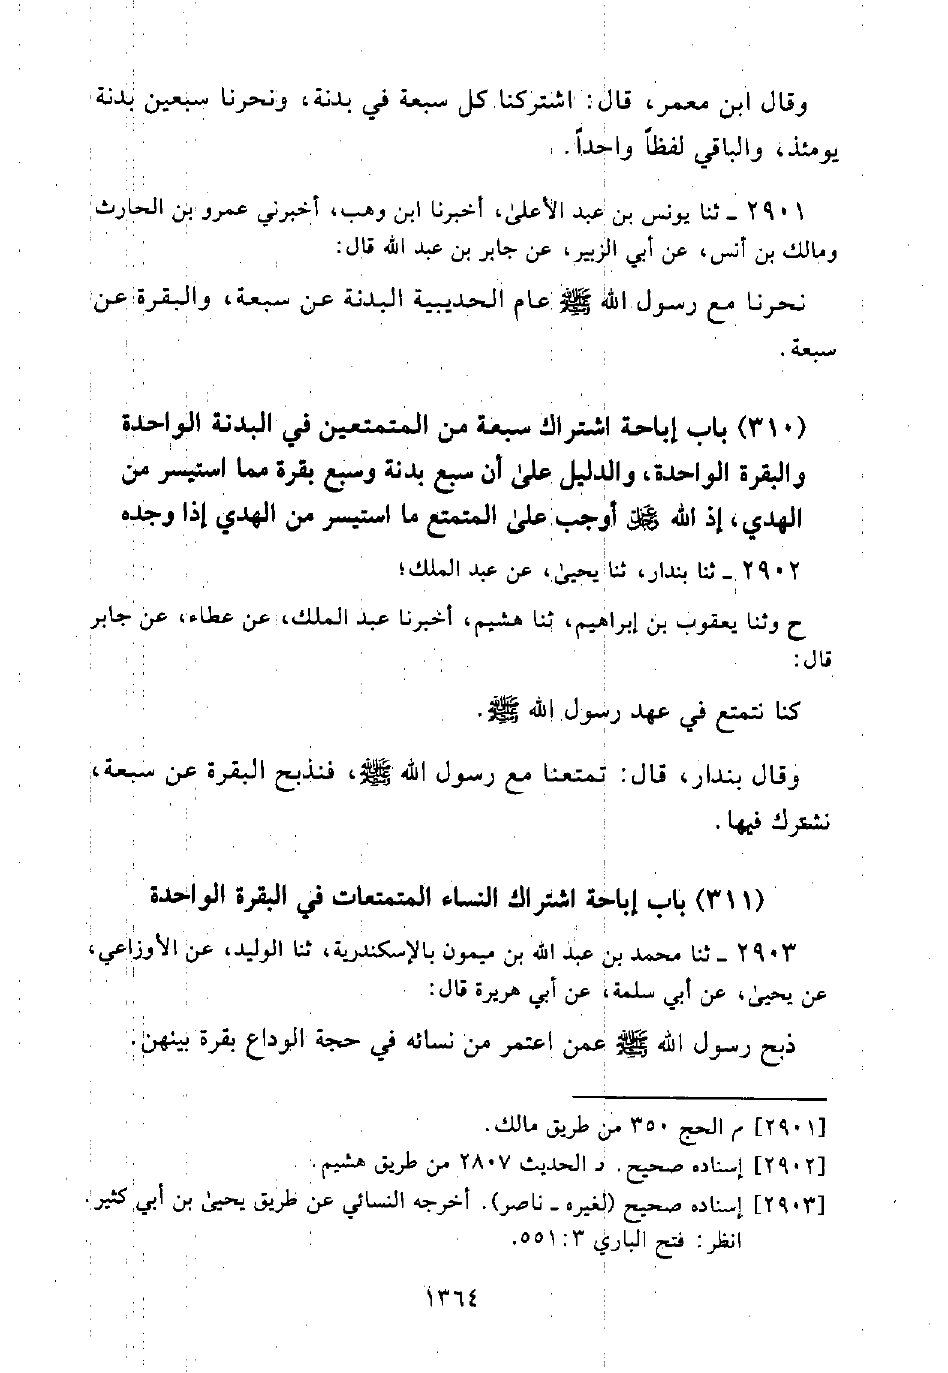 وقال ابن معمر، قال: اشتركنا كل سبعة في بدنة، ونحرنا سبعين بدنة
يومئذ، والباقي لفظاً واحداً.
٢٩٠١ ـ ثنا يونس بن عبد الأعلىٰ، أخبرنا ابن وهب، أخبرني عمرو بن الحارث
ومالك بن أنس، عن أبي الزبير، عن جابر بن عبد الله قال:
نحرنا مع رسول الله ﷺ عام الحديبية البدنة عن سبعة، والبقرة عن
سبعة.
(٣١٠) باب إباحة اشتراك سبعة من المتمتعين في البدنة الواحدة
والبقرة الواحدة، والدليل علىٰ أن سبع بدنة وسبع بقرة مما استيسر من
الهدي، إذ الله ﷻ أوجب علىٰ المتمتع ما استيسر من الهدي إذا وجده
٢٩٠٢ ـ ثنا بندار، ثنا يحيىٰ، عن عبد الملك؛
ح وثنا يعقوب بن إبراهيم، ثنا هشيم، أخبرنا عبد الملك، عن عطاء، عن جابر
قال:
كنا نتمتع في عهد رسول الله ﷺ.
وقال بندار، قال: تمتعنا مع رسول الله ﷺ، فنذبح البقرة عن سبعة،
نشترك فيها.
(٣١١) باب إباحة اشتراك النساء المتمتعات في البقرة الواحدة
٢٩٠٣ ـ ثنا محمد بن عبد الله بن ميمون بالإسكندرية، ثنا الوليد، عن الأوزاعي،
عن يحيىٰ، عن أبي سلمة، عن أبي هريرة قال:
ذبح رسول الله ﷺ عمن اعتمر من نسائه في حجة الوداع بقرة بينهن.
[٢٩٠١] م الحج ٣٥٠ من طريق مالك.
[٢٩٠٢] إسناده صحيح. د الحديث ٢٨٠٧ من طريق هشيم.
[٢٩٠٣] إسناده صحيح (لغيره ـ ناصر). أخرجه النسائي عن طريق يحيىٰ بن أبي كثير.
انظر: فتح الباري ٣: ٥٥١.
١٣٦٤